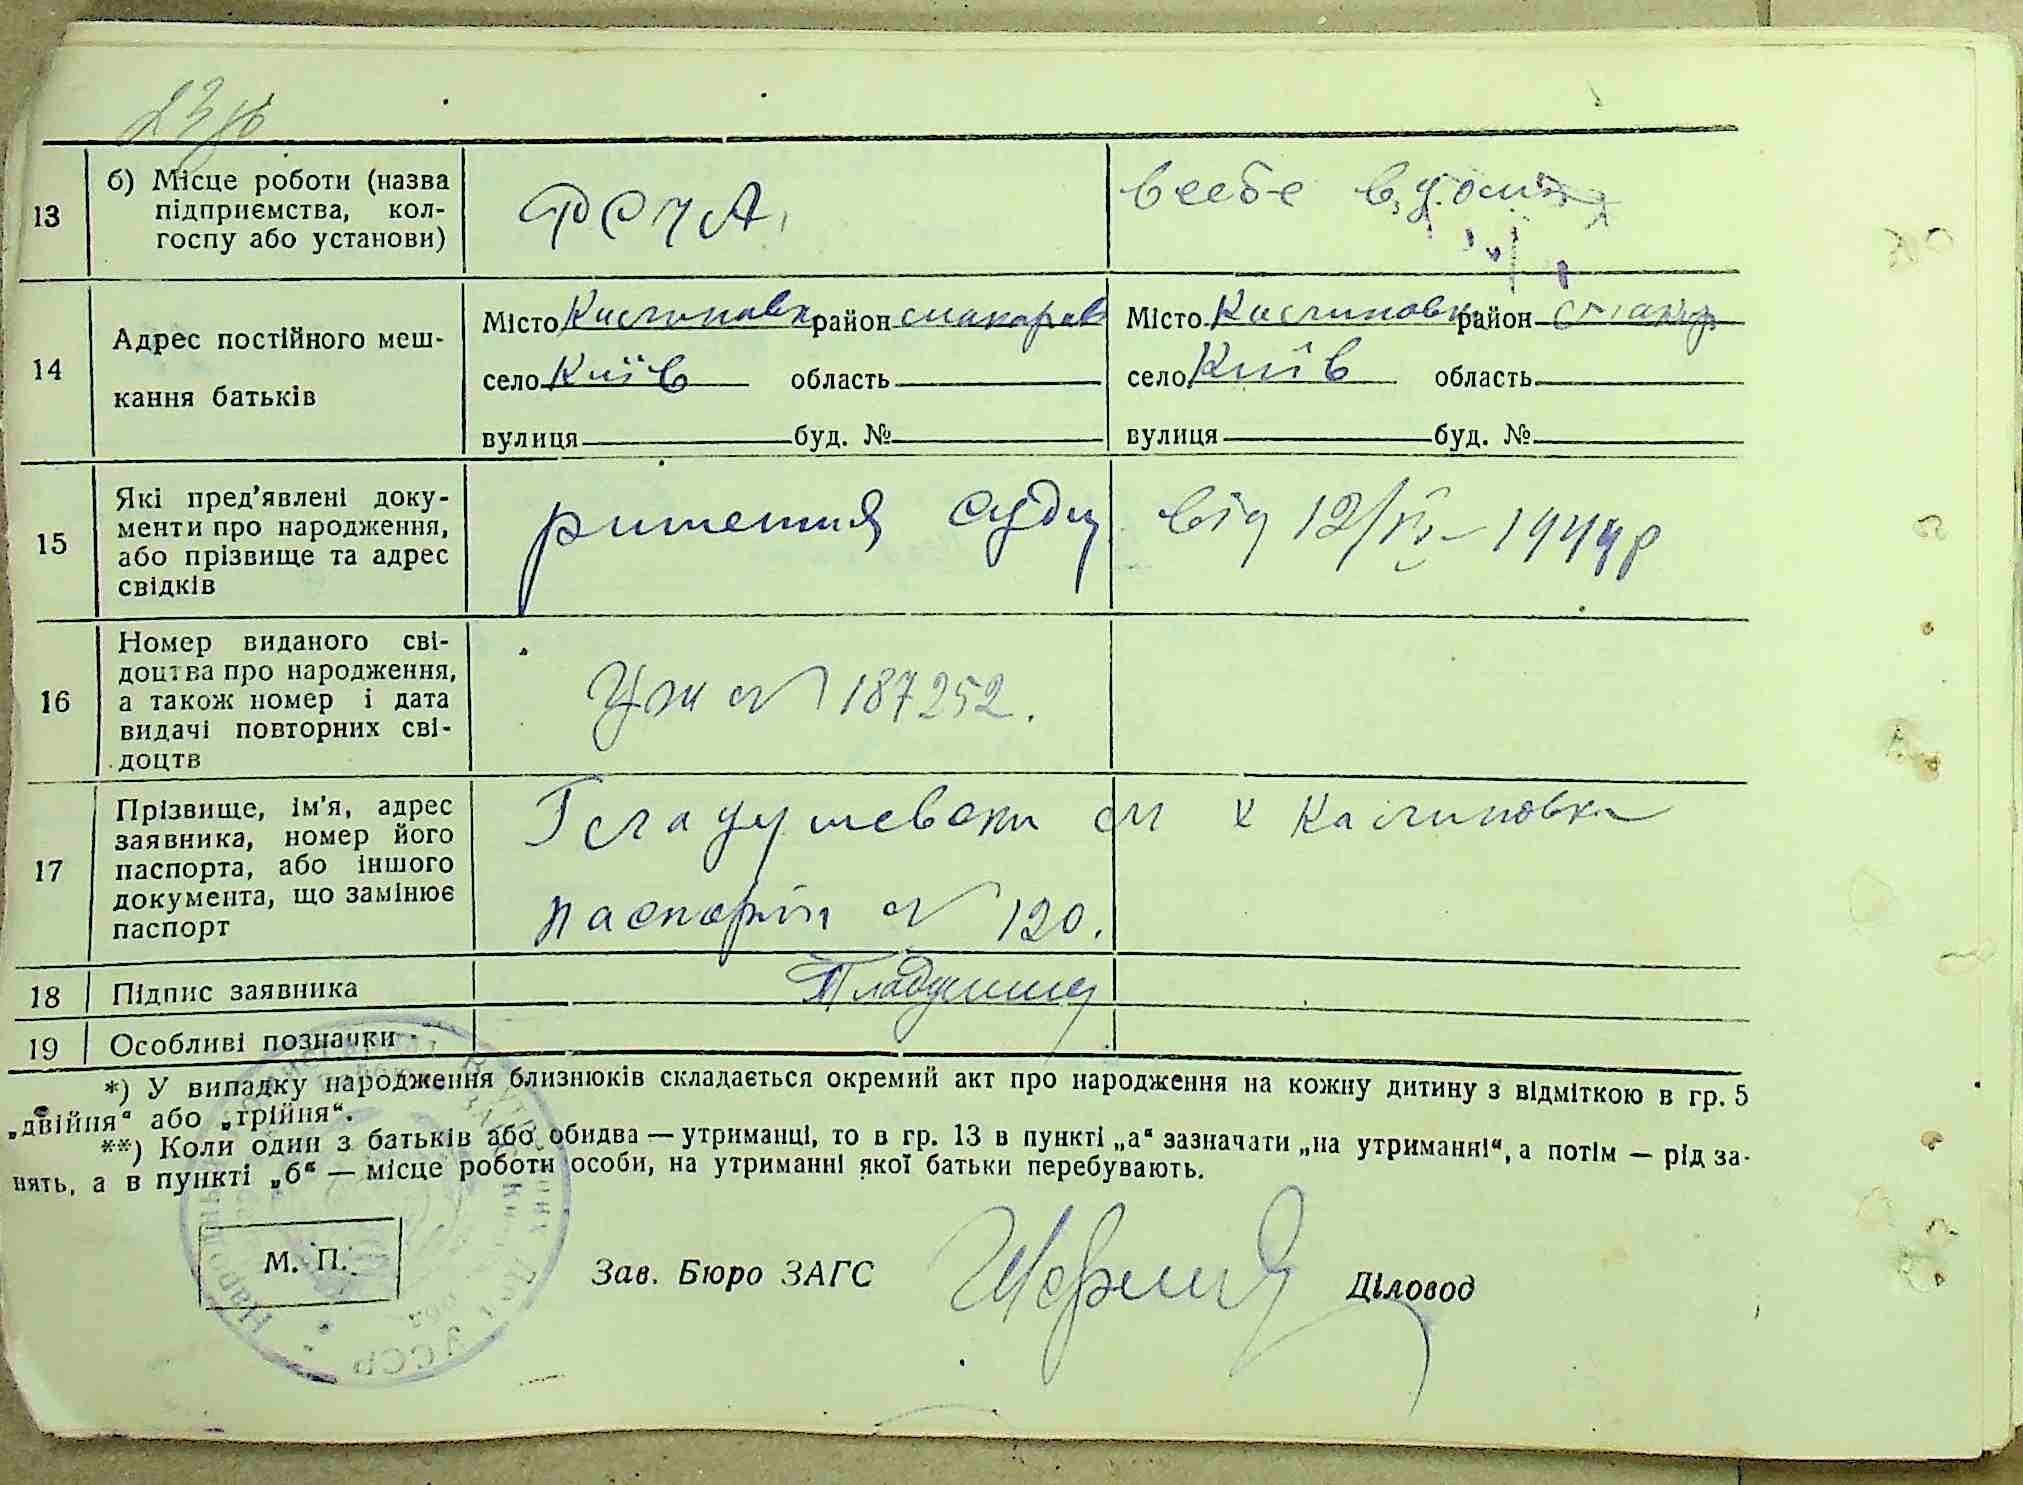 13
б) Місце роботи (назва
підприємства, кол-
госпу або установи)
РСЧА.
в себе вдома
14
Адрес постійного меш-
кання батьків
Місто Калиновка район Макарів
село Київ область
вулиця буд. №
Місто Калиновка район Макар
село Київ область
вулиця буд. №
15
Які пред’явлені доку-
менти про народження,
або прізвище та адрес
свідків
ришення суду від 12/IV – 1944 р
16
Номер виданого сві-
доцтва про народження,
а також номер і дата
видачі повторних сві-
доцтв
№ 187252.
17
Прізвище, ім’я, адрес
заявника, номер його
паспорта, або іншого
документа, що замінює
паспорт
с Калиновка
паспорт № 120.
18
Підпис заявника
19
Особливі позначки
*) У випадку народження близнюків складається окремий акт про народження на кожну дитину з відміткою в гр. 5
„двійня“ або „трійня“.
**) Коли один з батьків або обидва — утриманці, то в гр. 13 в пункті „а“ зазначати „на утриманні“, а потім — рід за-
нять, а в пункті „б“ — місце роботи особи, на утриманні якої батьки перебувають.
М. П.
Зав. Бюро ЗАГС
Діловод